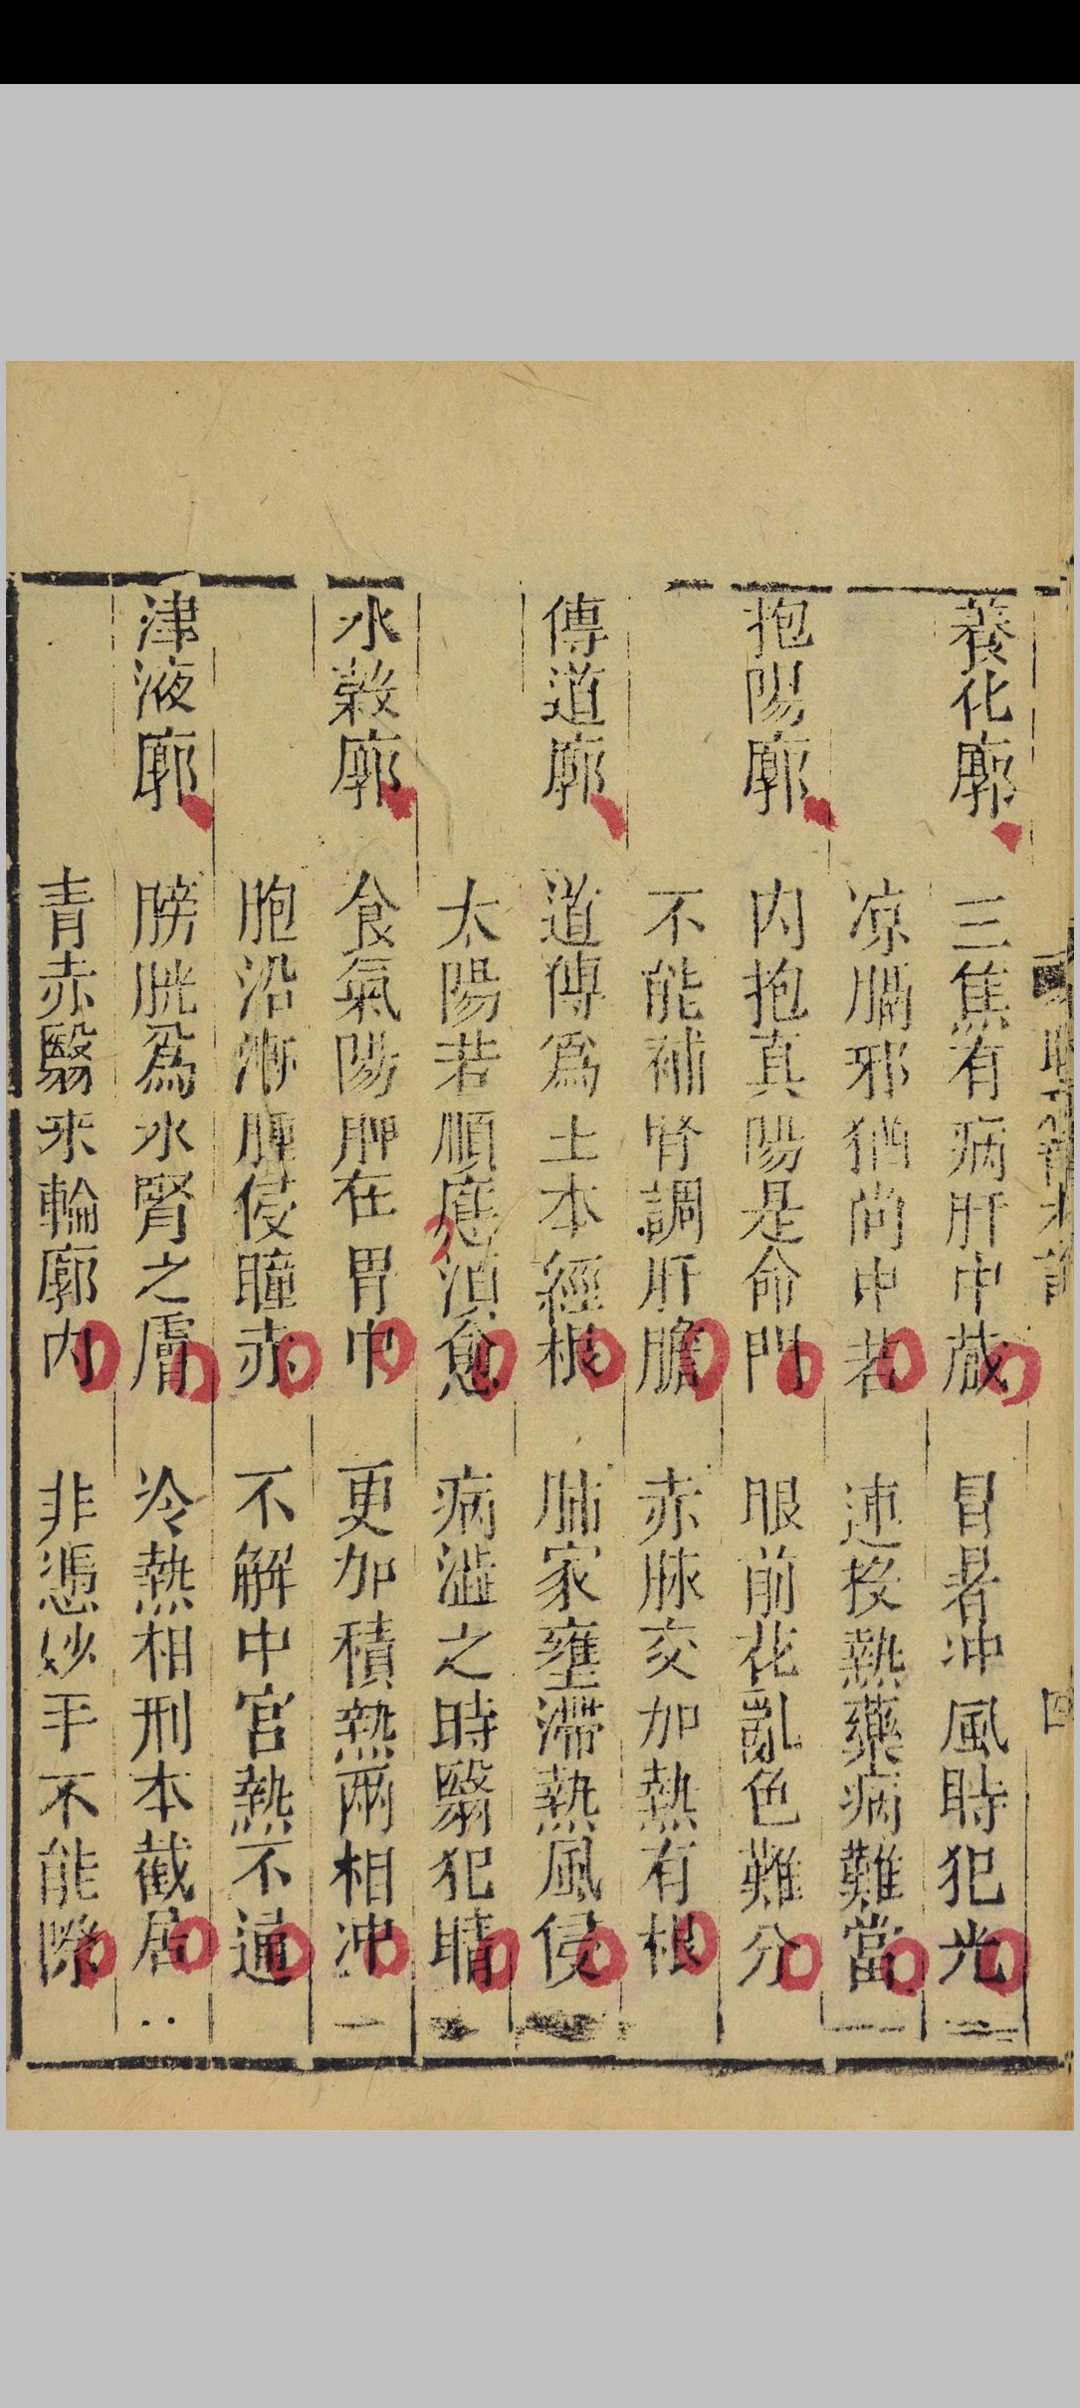 養化廓
三焦有病肝中藏 冒暑冲風時犯光
凉膈邪猶尚中若 連投熱藥病難當
抱陽廓
内抱真陽是命門 眼前花亂色難分
不能補腎調肝膽 赤脉交加熱有根
傳道廓
道傳為土本經根 肺家壅滯熱風侵
太陽若順應須愈 病澁之時翳犯睛
水榖廓
食氣陽胛在胃中 更加積熱兩相冲
胞沿漸腫侵瞳赤 不解中官熱不通
津液廓
膀胱為水腎之膚 冷熱相刑本截居
青赤翳来輪廓内 非憑妙手不能除